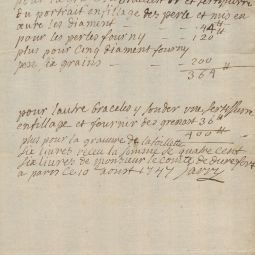 du portrait enfillage des perle et mis en
œutre les diament — 44 #
pour les perles fourny — 120 #
plus pour Cinq diament fourny
pese six grains — 200
364 #
pour lautre braceles y souder une sertissure
enfillage et fournir des grenast 36 #
plus pour la gravure de
400 #
six livres recu la somme de quatre cent
six livres de monsieur le comte de durefort
a paris ce 10 aoust 1747 Jarry